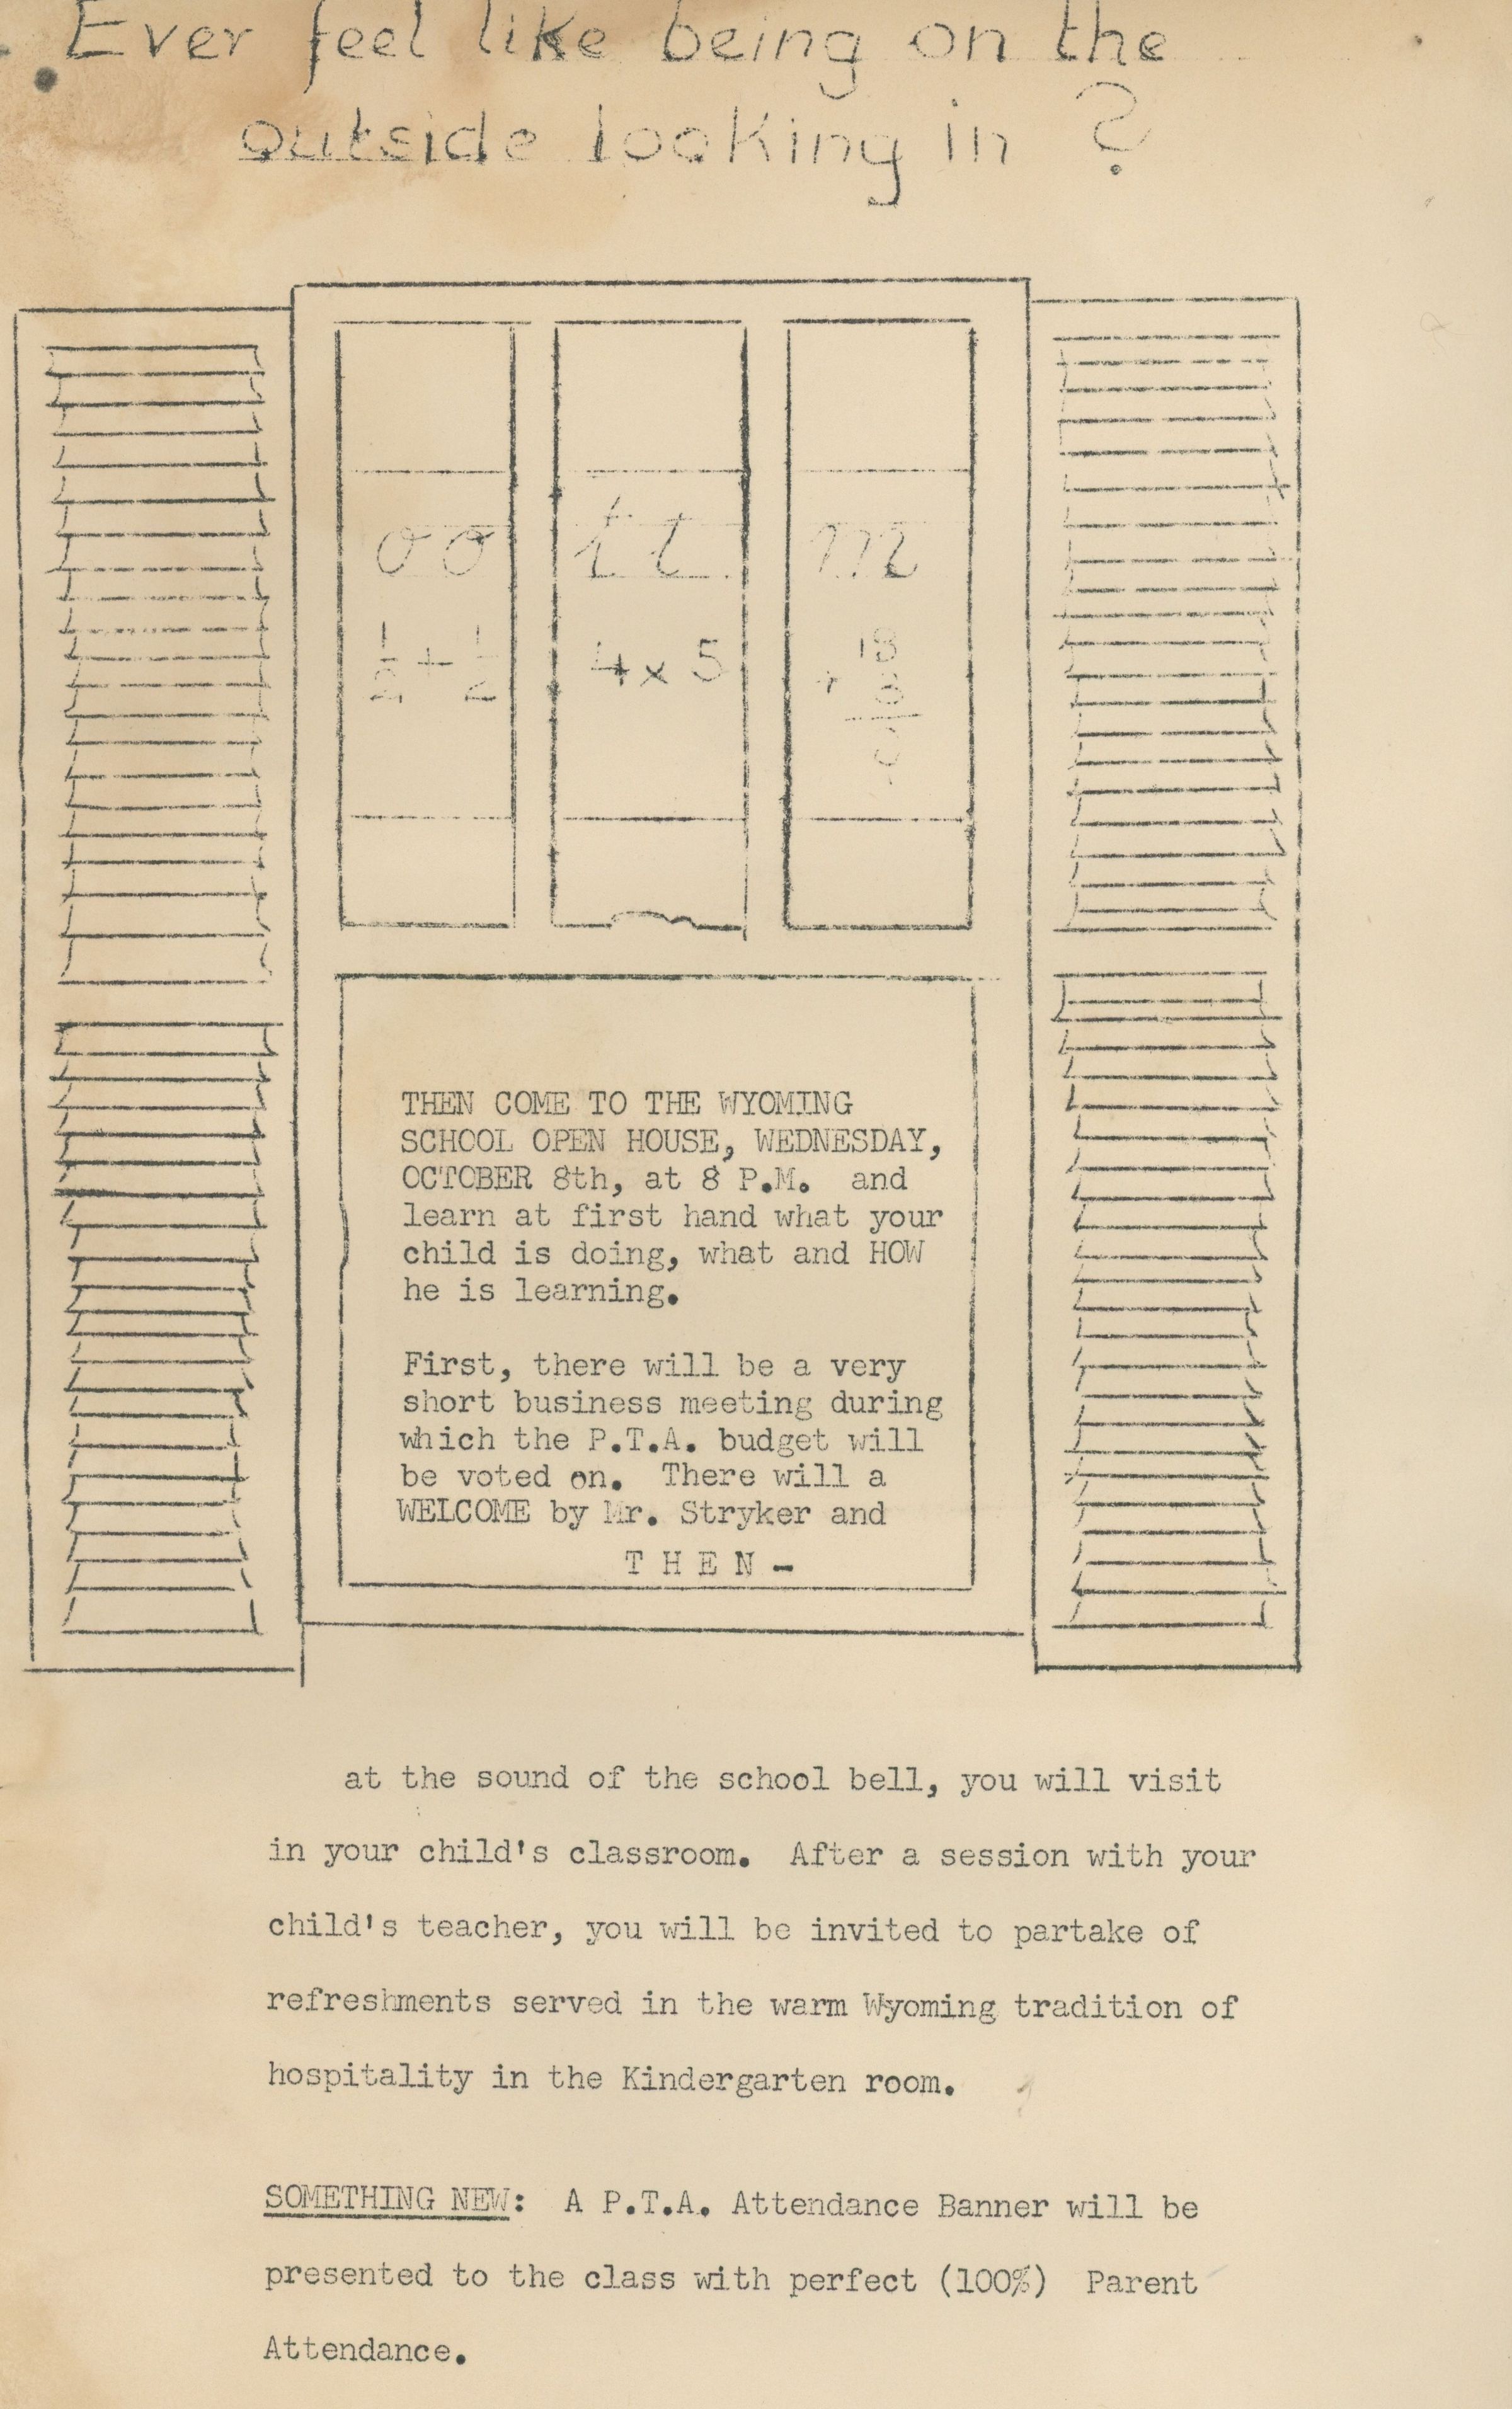 Ever feel like being on the
outside looking in ?
oo tt m
1/2 + 1/2
4 x 5
18
THEN COME TO THE WYOMING
SCHOOL OPEN HOUSE, WEDNESDAY,
OCTOBER 8th, at 8 P.M. and
learn at first hand what your
child is doing, what and HOW
he is learning.
First, there will be a very
short business meeting during
which the P.T.A. budget will
be voted on. There will a
WELCOME by Mr. Stryker and
T H E N -
at the sound of the school bell, you will visit
in your child's classroom. After a session with your
child's teacher, you will be invited to partake of
refreshments served in the warm Wyoming tradition of
hospitality in the Kindergarten room.
SOMETHING NEW: A P.T.A. Attendance Banner will be
presented to the class with perfect (100%) Parent
Attendance.